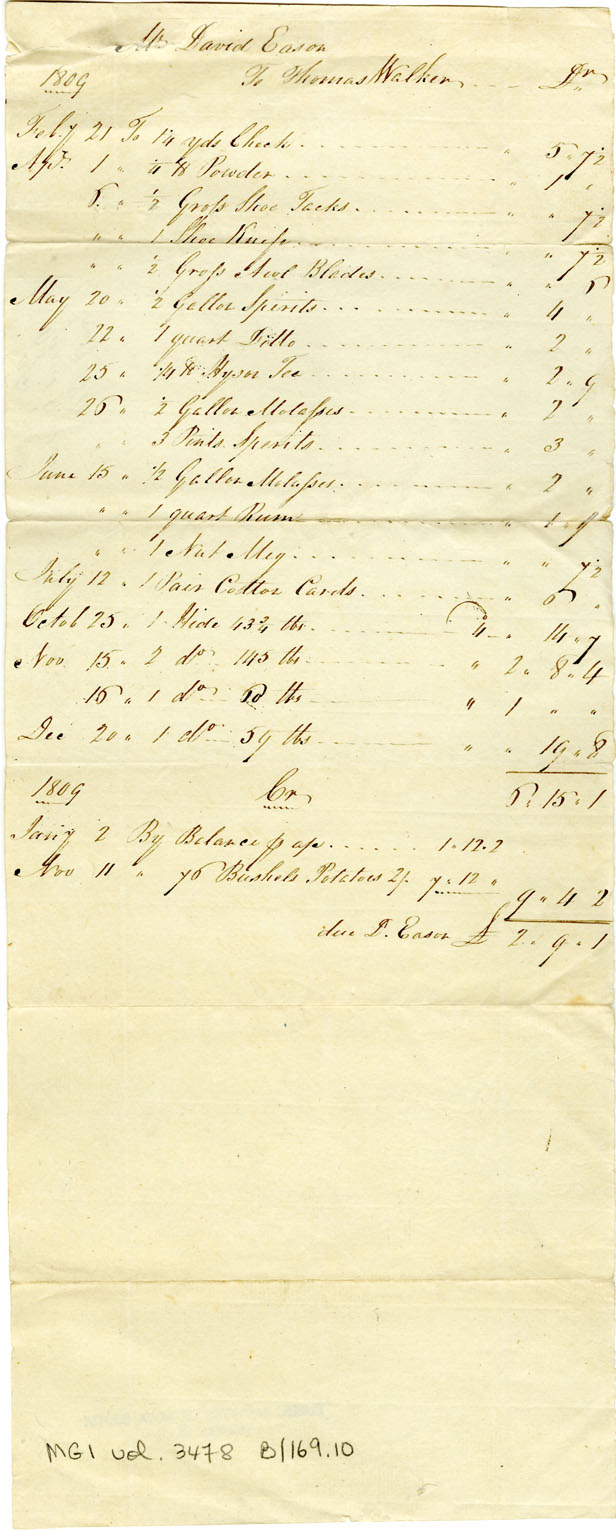 Mr David Eason
1809 To Thomas Walker Dr
Feby 21 To 1¼ yds Check " 5 " 7½
Apr. 1 " ¼ lb Powder " 1 "
6 " ½ Gross Shoe Tacks " " 7½
" " 1 Shoe Knife " " 7½
" " ½ Gross Awl Blades " " 6
May 20 " ½ Gallon Spirits " 4 "
22 " 1 quart Ditto " 2 "
25 " ¼ lb Hyson Tea " 2 " 9
26 " ½ Gallon Molasses " 2 "
" " 3 Pints Spirits " 3 "
June 15 " ½ Gallon Molasses " 2 "
" " 1 quart Rum " 1 " 9
" " 1 Nut Meg " " 7½
July 12 " 1 Pair Cotton Cards " 6 "
Octob 25 " 1 Hide 43¾ lbs 4 " 14 " 7
Nov 15 " 2 do 145 lbs " 2 " 8 " 4
16 " 1 do 60 lbs " 1 " "
Dec 20 " 1 do 59 lbs " " 19 " 8
1809 Cr 6 " 15 " 1
Jany 2 By Balance p a/c 1 " 12 " 2
Nov 11 " 76 Bushels Potatoes 2/ 7 " 12 "
9 " 4 2
due D. Eason £ 2 " 9 " 1
MG1 vol. 3478 B/169.10